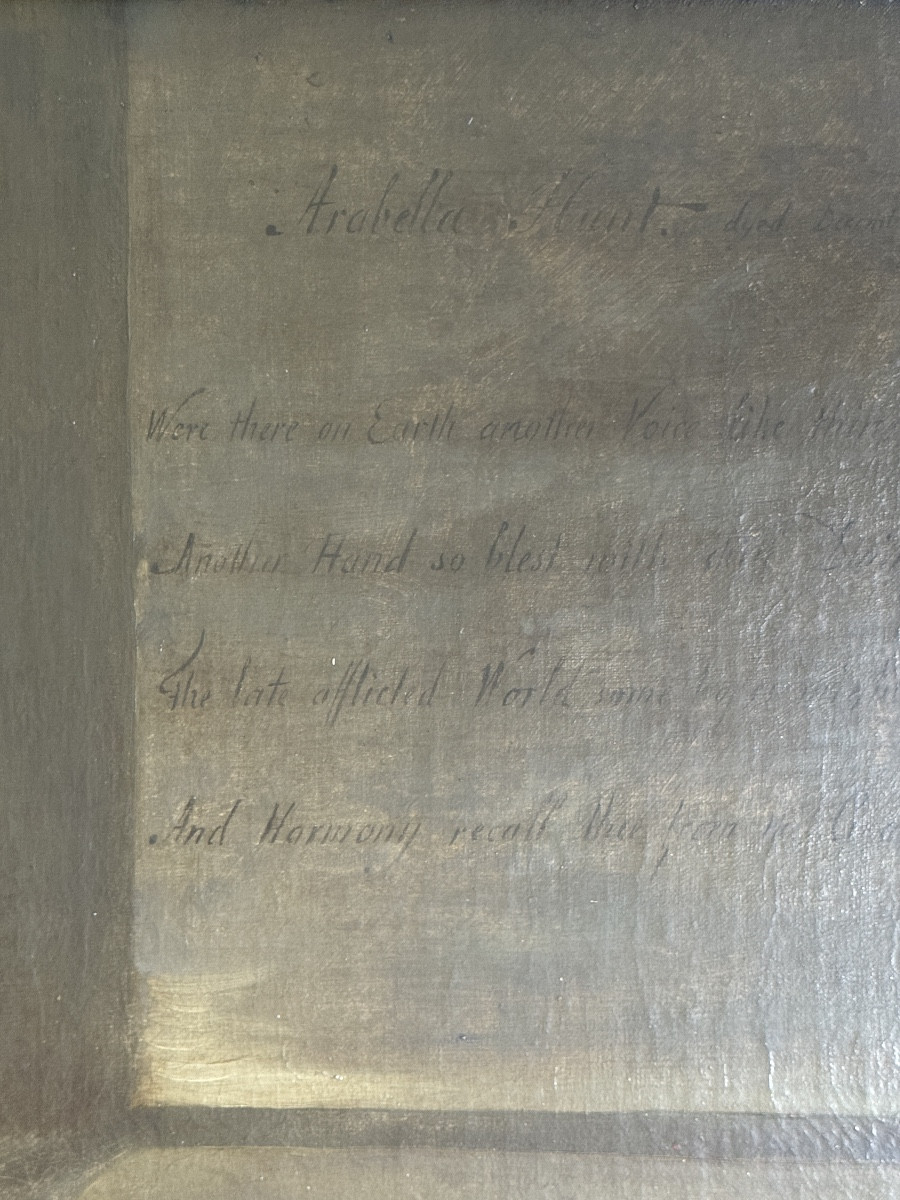 Arabella Hunt. dyed
Were there on Earth another Voice like thine
Another Hand so blest with
The late afflicted World some
And Harmony recall thee from